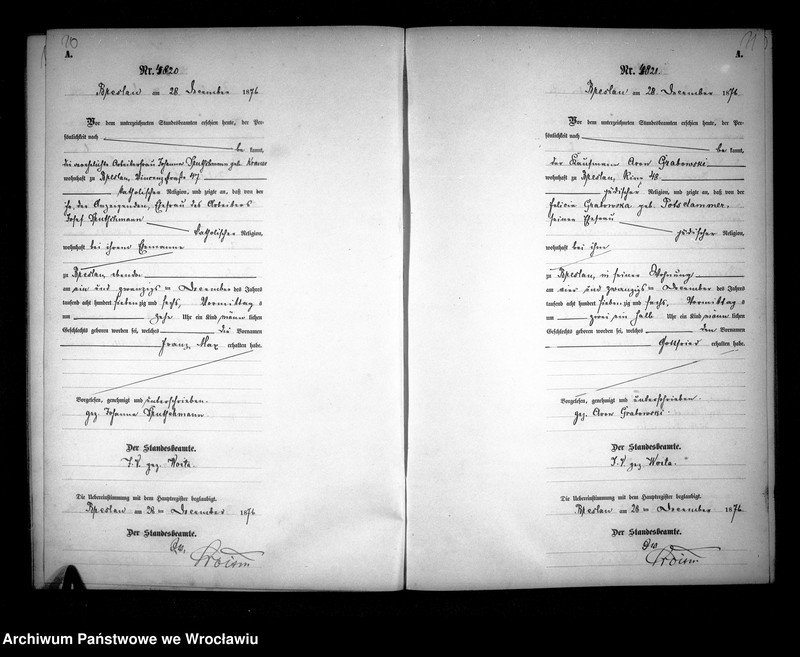 A.
Nr. 4820
Breslau am 28 December 1876
Vor dem unterzeichneten Standesbeamten erschien heute, der Per-
sönlichkeit nach
be kannt,
die verehelichte Arbeiterfrau Johanna geb. Krause
wohnhaft zu Breslau, Vincenzstraße 47
katholischer Religion, und zeigte an, daß von der
ihr, der Anzeigenden, Ehefrau des Arbeiters
Josef
katholischer Religion,
wohnhaft bei ihrem Ehemanne
zu Breslau, ebenda
am ein und zwanzigs ten December des Jahres
tausend acht hundert siebenzig und sechs, Vormittag s
um zehn Uhr ein Kind männ lichen
Geschlechts geboren worden sei, welches die Vornamen
Franz Max erhalten habe.
Vorgelesen, genehmigt und unterschrieben.
gez. Johanna
Der Standesbeamte.
J. V. gez.
Die Uebereinstimmung mit dem Hauptregister beglaubigt.
Breslau am 28 ten December 1876
Der Standesbeamte.
A.
Nr. 4821
Breslau am 28 December 1876
Vor dem unterzeichneten Standesbeamten erschien heute, der Per-
sönlichkeit nach
be kannt,
der Kaufmann Aron Grabowski
wohnhaft zu Breslau, Ring 48
jüdischer Religion, und zeigte an, daß von der
Felicia Grabowska geb. Potsdammer,
seiner Ehefrau
jüdischer Religion,
wohnhaft bei ihm
zu Breslau, in seiner Wohnung
am vier und zwanzigs ten December des Jahres
tausend acht hundert siebenzig und sechs, Vormittag s
um zwei ein halb Uhr ein Kind männ lichen
Geschlechts geboren worden sei, welches den Vornamen
Gottfried erhalten habe.
Vorgelesen, genehmigt und unterschrieben.
gez. Aron Grabowski.
Der Standesbeamte.
J. V. gez.
Die Uebereinstimmung mit dem Hauptregister beglaubigt.
Breslau am 28 ten December 1876
Der Standesbeamte.
Archiwum Państwowe we Wrocławiu